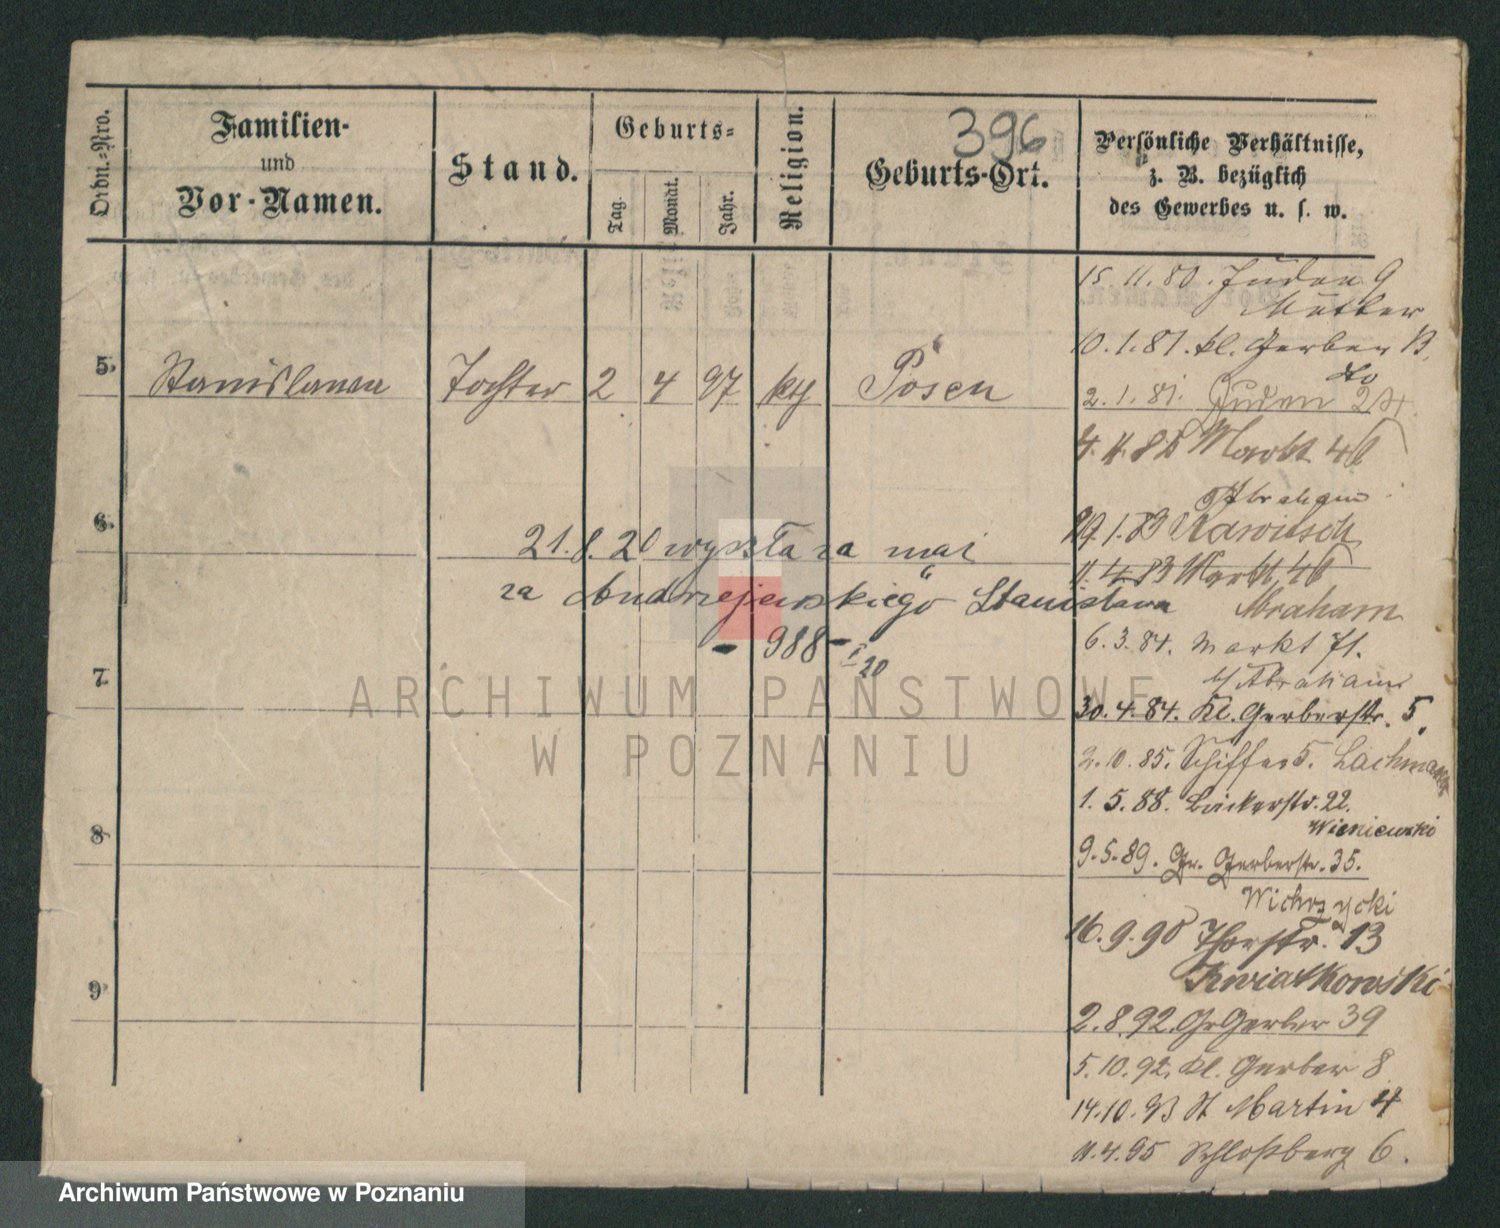 396
Ordn.-Nro.
Familien-
und
Vor-Namen.
Stand.
Geburts-
Tag.
Monat.
Jahr.
Religion.
Geburts-Ort.
Persönliche Verhältnisse,
z. B. bezüglich
des Gewerbes u. s. w.
15. 11. 80. Juden 9
Mutter
10. 1. 81. kl. Gerber 13.
dto
5. Stanislawa Tochter 2 4 97 kth Posen
2. 1. 81. Juden
4. 11. 82 Markt 46
Abraham
6.
1. 83 Rawitsch
21. 8. 20 wyszła za mąż
11. 4. 83 Markt 46
za Andrzejewskiego Stanisława
Abraham
- 988 - I/20
6. 3. 84. Markt 71.
7.
b/ Abraham
30. 4. 84. Kl. Gerberstr. 5.
2. 10. 85. Schiffer 5. Lachmann
1. 5. 88. Bäckerstr. 22.
Wisniewski
8.
9. 5. 89. Gr. Gerberstr. 35.
Wichrzycki
16. 9. 90 Thorstr. 13
Kwiatkowski
9.
2. 8. 92. Gr Gerber 39
5. 10. 92. Kl. Gerber 8
14. 10. 93 St Martin 4
11. 4. 95 Schloßberg 6.
ARCHIWUM PAŃSTWOWE
W POZNANIU
Archiwum Państwowe w Poznaniu